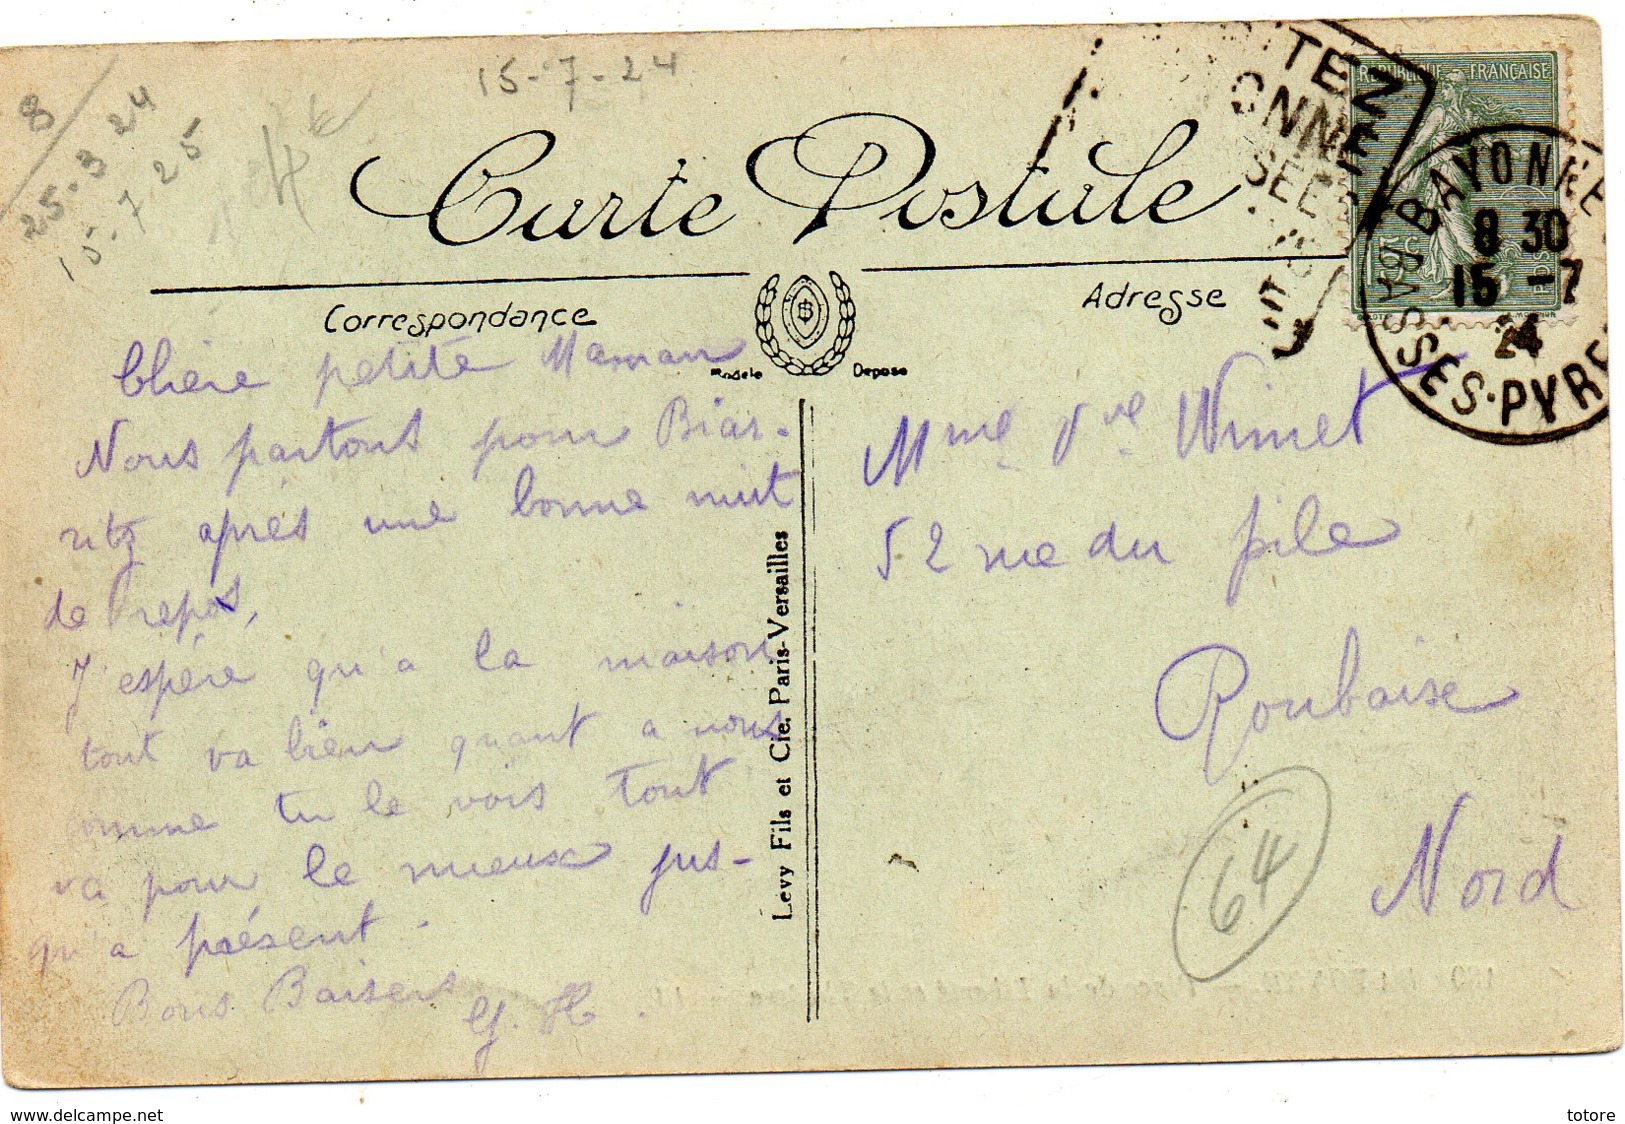 15-7-24
8
25-3 24
15-7 25
Carte Postale
Correspondance
Adresse
Modèle Déposé
RÉPUBLIQUE FRANÇAISE
15c
BAYONNE
8 30
15 -7
24
BASSES-PYRÉ
Chère petite Maman
Nous partons pour Biar-
ritz après une bonne nuit
de repos,
J'espère qu'a la maison
tout va bien quant a nous
comme tu le vois tout
va pour le mieux jus-
qu'a présent.
Bons Baisers
G. H.
Levy Fils et Cie, Paris-Versailles
Mme Vve Wimet
52 rue du pile
Roubaise
Nord
64
www.delcampe.net
totore